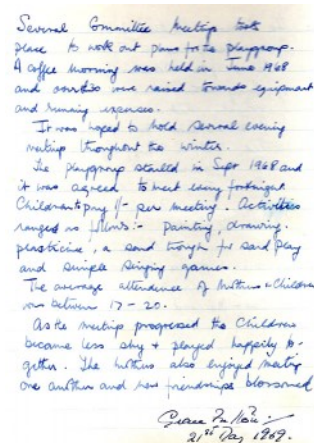 Several Committee Meetings took
place to work out plans for the playgroup.
A coffee morning was held in June 1968
and was raised towards equipment
and running expenses.
It was hoped to hold several evening
meetings throughout the winter.
The playgroup started in Sept 1968 and
it was agreed to meet every fortnight.
Children to pay 1/- per meeting. Activities
ranged as follows:- painting, drawing,
plasticine, a sand trough for sand play
and simple singing games.
The average attendance of Mothers + Children
was between 17 - 20.
As the meetings progressed the Children
became less shy + played happily to-
gether. The mothers also enjoyed meeting
one another and new friendships blossomed
Grace
21st May 1969.